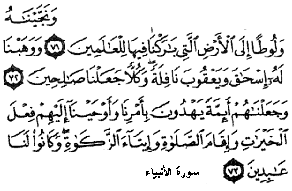 وَنَجَّيْنَٰهُ
وَلُوطًا إِلَى ٱلْأَرْضِ ٱلَّتِى بَٰرَكْنَا فِيهَا لِلْعَٰلَمِينَ ٧١ وَوَهَبْنَا
لَهُۥٓ إِسْحَٰقَ وَيَعْقُوبَ نَافِلَةً ۖ وَكُلًّا جَعَلْنَا صَٰلِحِينَ ٧٢
وَجَعَلْنَٰهُمْ أَئِمَّةً يَهْدُونَ بِأَمْرِنَا وَأَوْحَيْنَآ إِلَيْهِمْ فِعْلَ
ٱلْخَيْرَٰتِ وَإِقَامَ ٱلصَّلَوٰةِ وَإِيتَآءَ ٱلزَّكَوٰةِ ۖ وَكَانُوا۟ لَنَا
عَٰبِدِينَ ٧٣ سورة الأنبياء